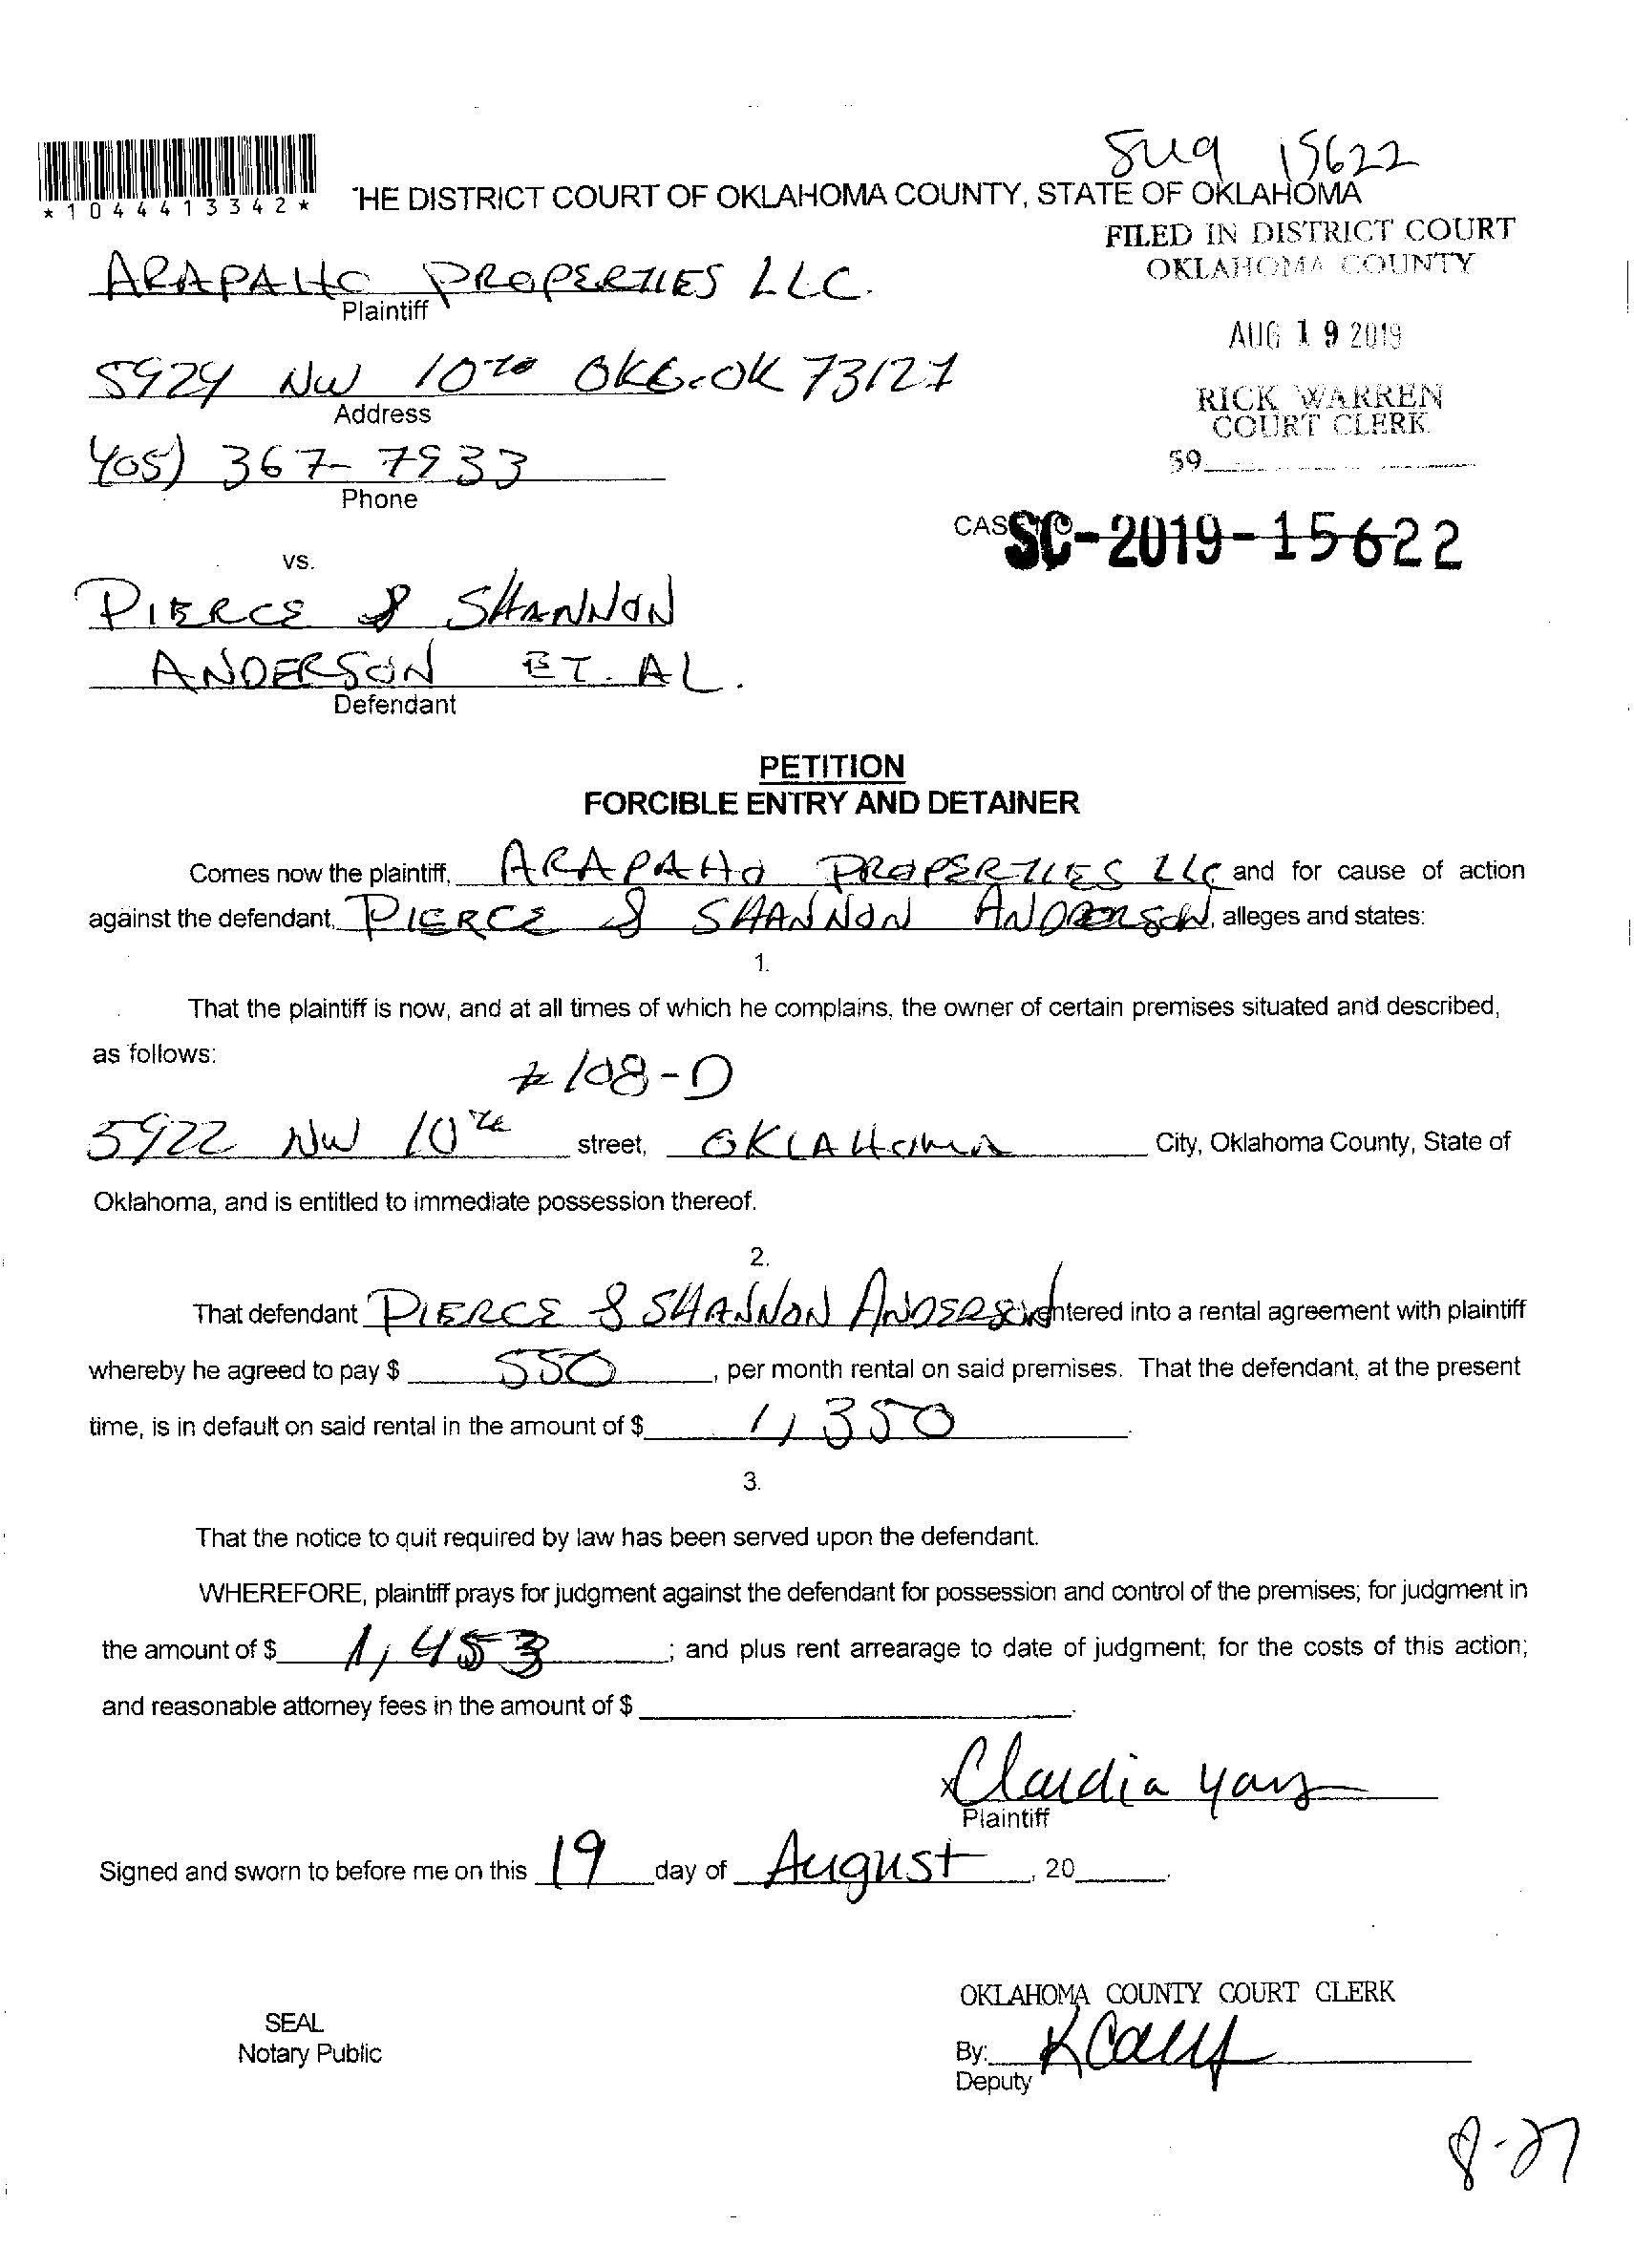 Sug 15622
*1044413342*
'HE DISTRICT COURT OF OKLAHOMA COUNTY, STATE OF OKLAHOMA
FILED IN DISTRICT COURT
OKLAHOMA COUNTY
ARAPAHO PROPERTIES LLC.
Plaintiff
AUG 19 2019
5924 NW 10TH OKC.OK 73127
Address
RICK WARREN
COURT CLERK
405) 367-7933
Phone
59
CAS SC-2019-15622
vs.
PIERCE & SHANNON
ANDERSON ET. AL.
Defendant
PETITION
FORCIBLE ENTRY AND DETAINER
Comes now the plaintiff, ARAPAHO PROPERTIES LLC and for cause of action
against the defendant, PIERCE & SHANNON ANDERSON, alleges and states:
1.
That the plaintiff is now, and at all times of which he complains, the owner of certain premises situated and described,
as follows:
#108-D
5922 NW 10TH street, OKLAHOMA City, Oklahoma County, State of
Oklahoma, and is entitled to immediate possession thereof.
2.
That defendant PIERCE & SHANNON ANDERSON entered into a rental agreement with plaintiff
whereby he agreed to pay $ 550, per month rental on said premises. That the defendant, at the present
time, is in default on said rental in the amount of $ 1,350.
3.
That the notice to quit required by law has been served upon the defendant.
WHEREFORE, plaintiff prays for judgment against the defendant for possession and control of the premises; for judgment in
the amount of $ 1,453; and plus rent arrearage to date of judgment; for the costs of this action;
and reasonable attorney fees in the amount of $
x Claudia
Plaintiff
Signed and sworn to before me on this 19 day of August, 20
OKLAHOMA COUNTY COURT CLERK
SEAL
Notary Public
By:
Deputy
8-27